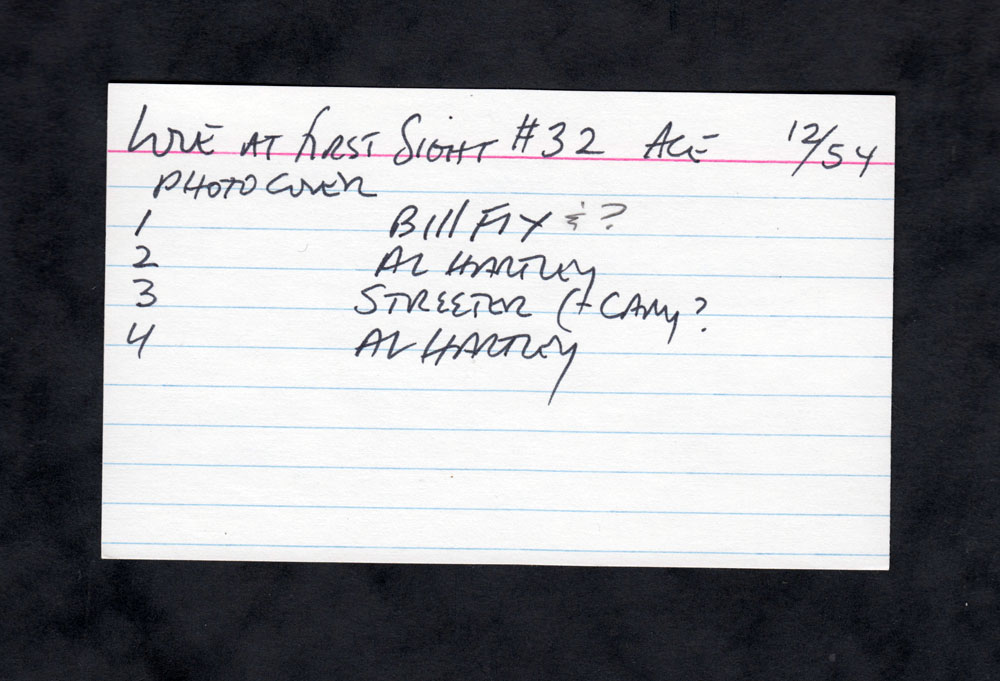 LOVE AT FIRST SIGHT #32 ACE 12/54
PHOTO COVER
1 BILL FIX & ?
2 AL HARTLEY
3 STREETER (+ CAMY?
4 AL HARTLEY